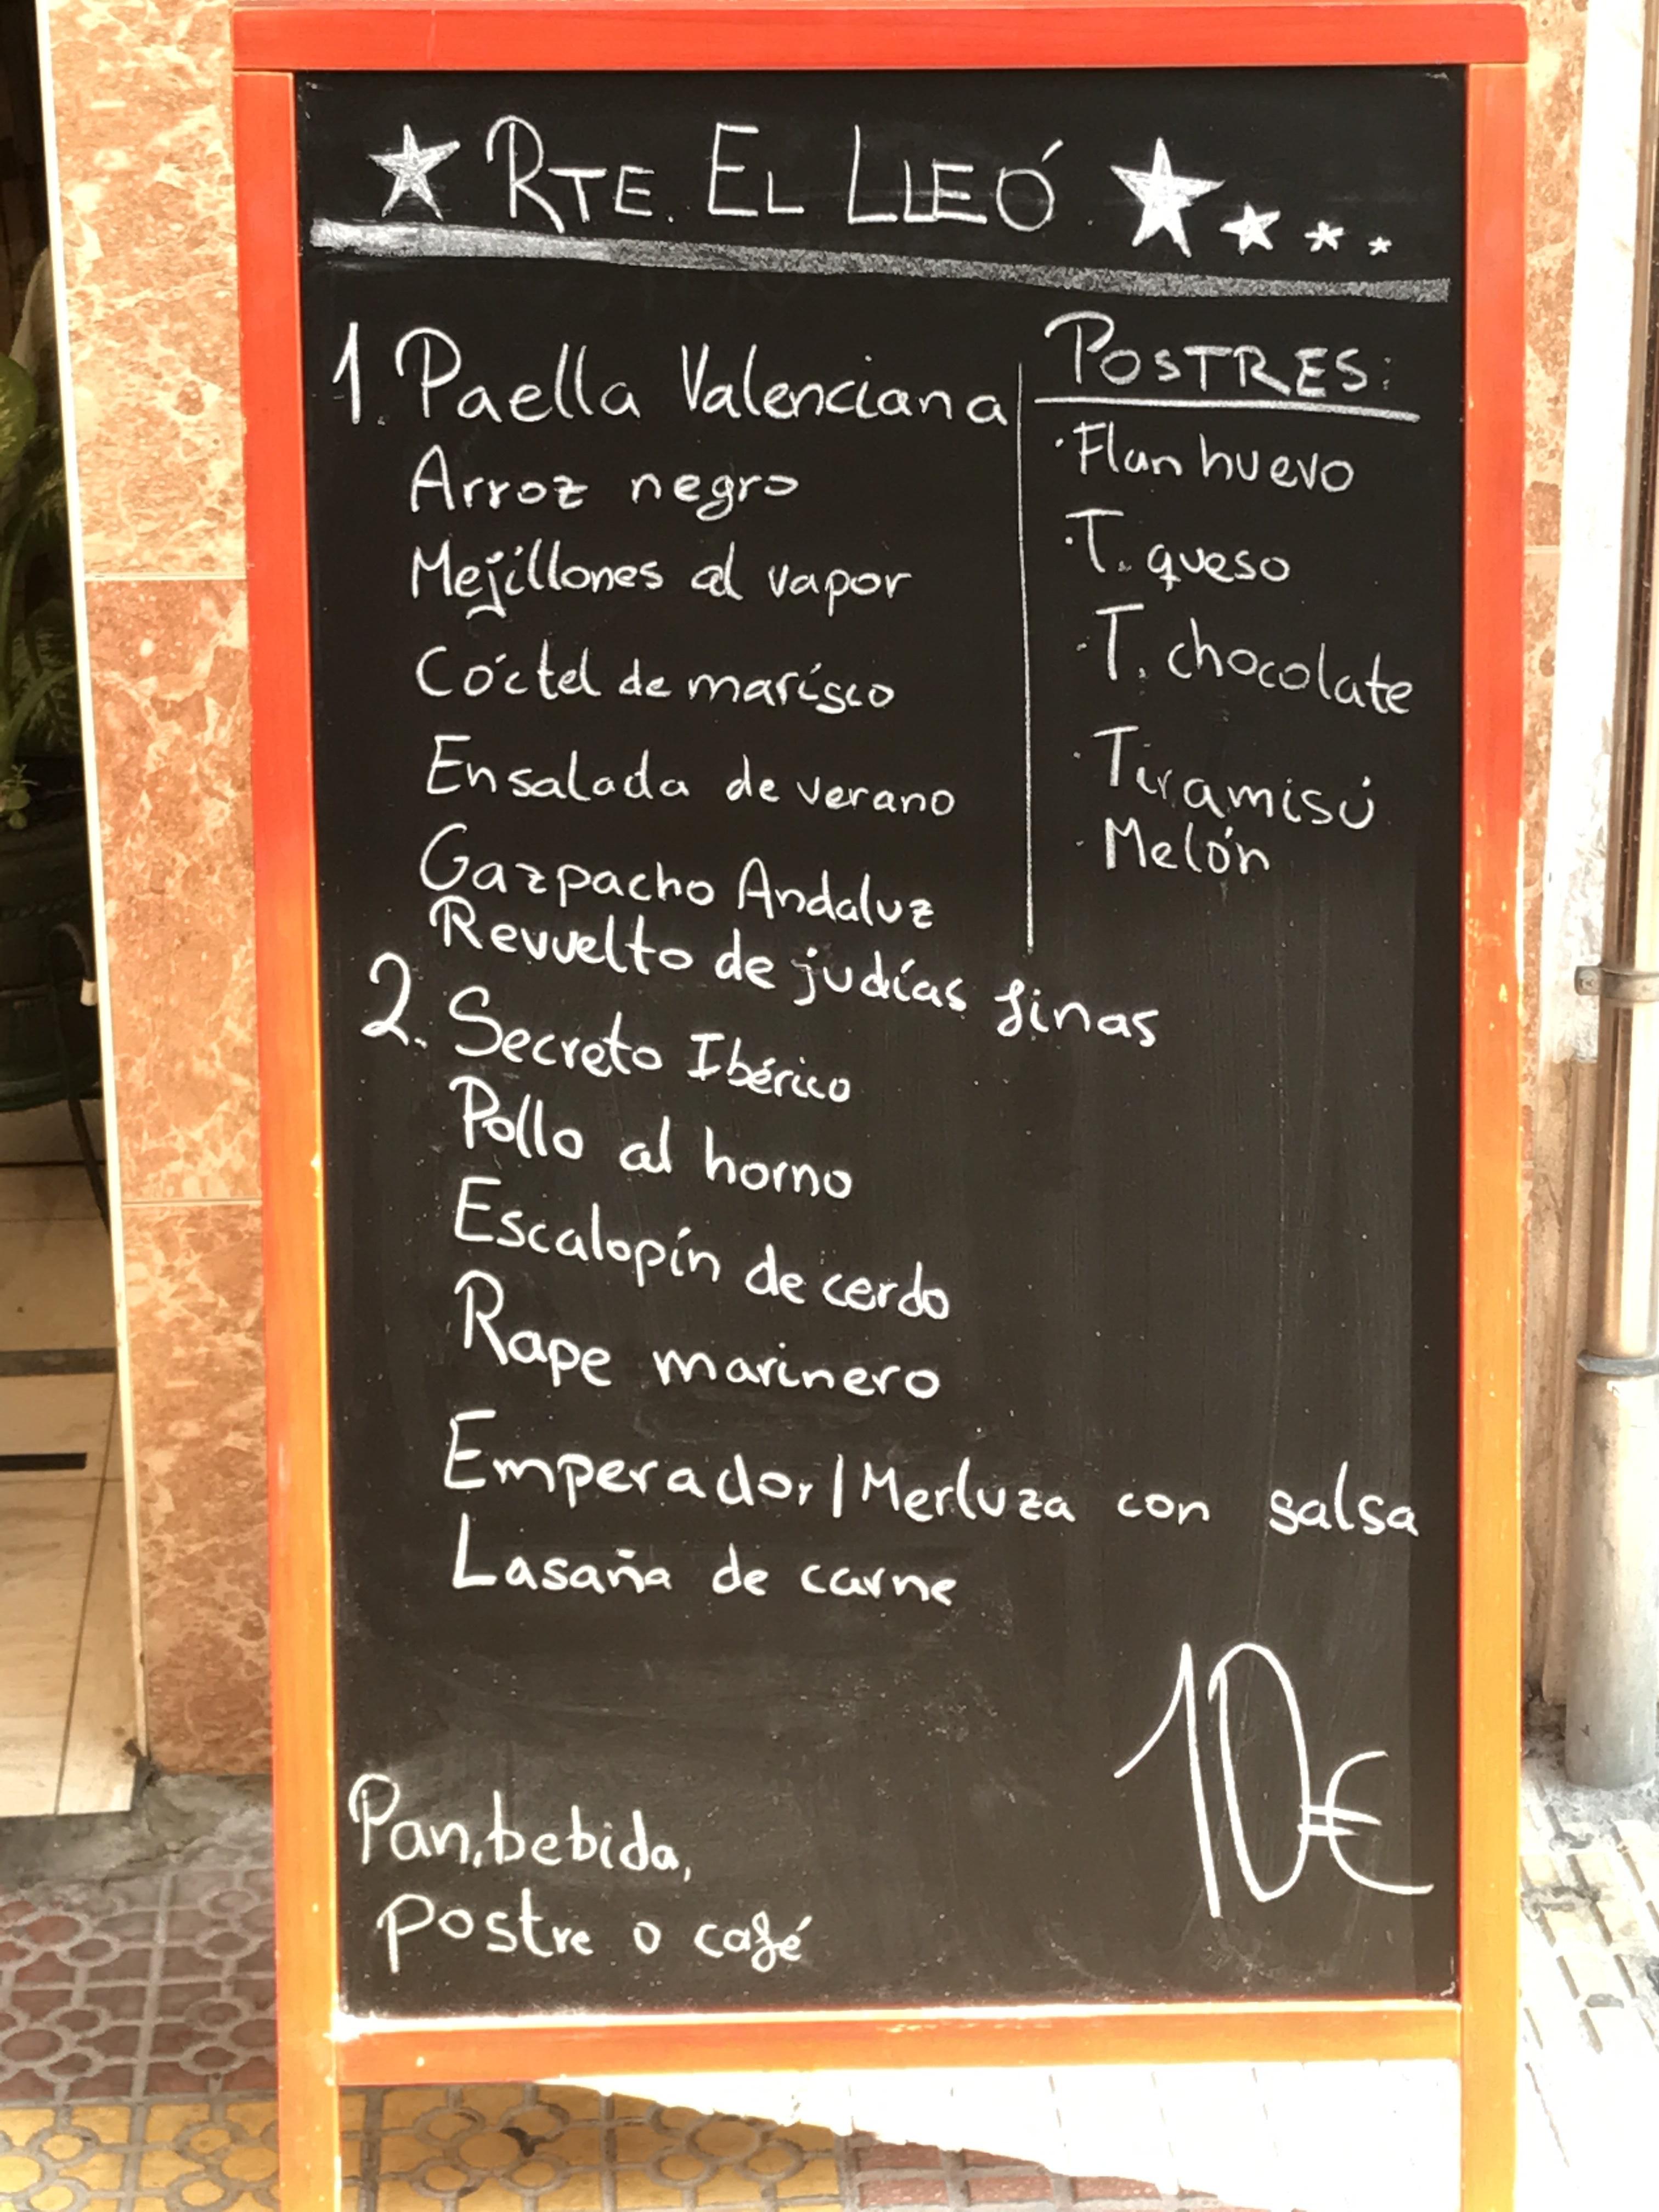 RTE. EL LLEÓ
1. Paella Valenciana
Arroz negro
Mejillones al vapor
Cóctel de marisco
Ensalada de verano
Gazpacho Andaluz
Revuelto de judías finas
2. Secreto Ibérico
Pollo al horno
Escalopín de cerdo
Rape marinero
Emperador/Merluza con salsa
Lasaña de carne
POSTRES:
· Flan huevo
· T. queso
· T. chocolate
· Tiramisú
· Melón
10€
Pan, bebida,
postre o café